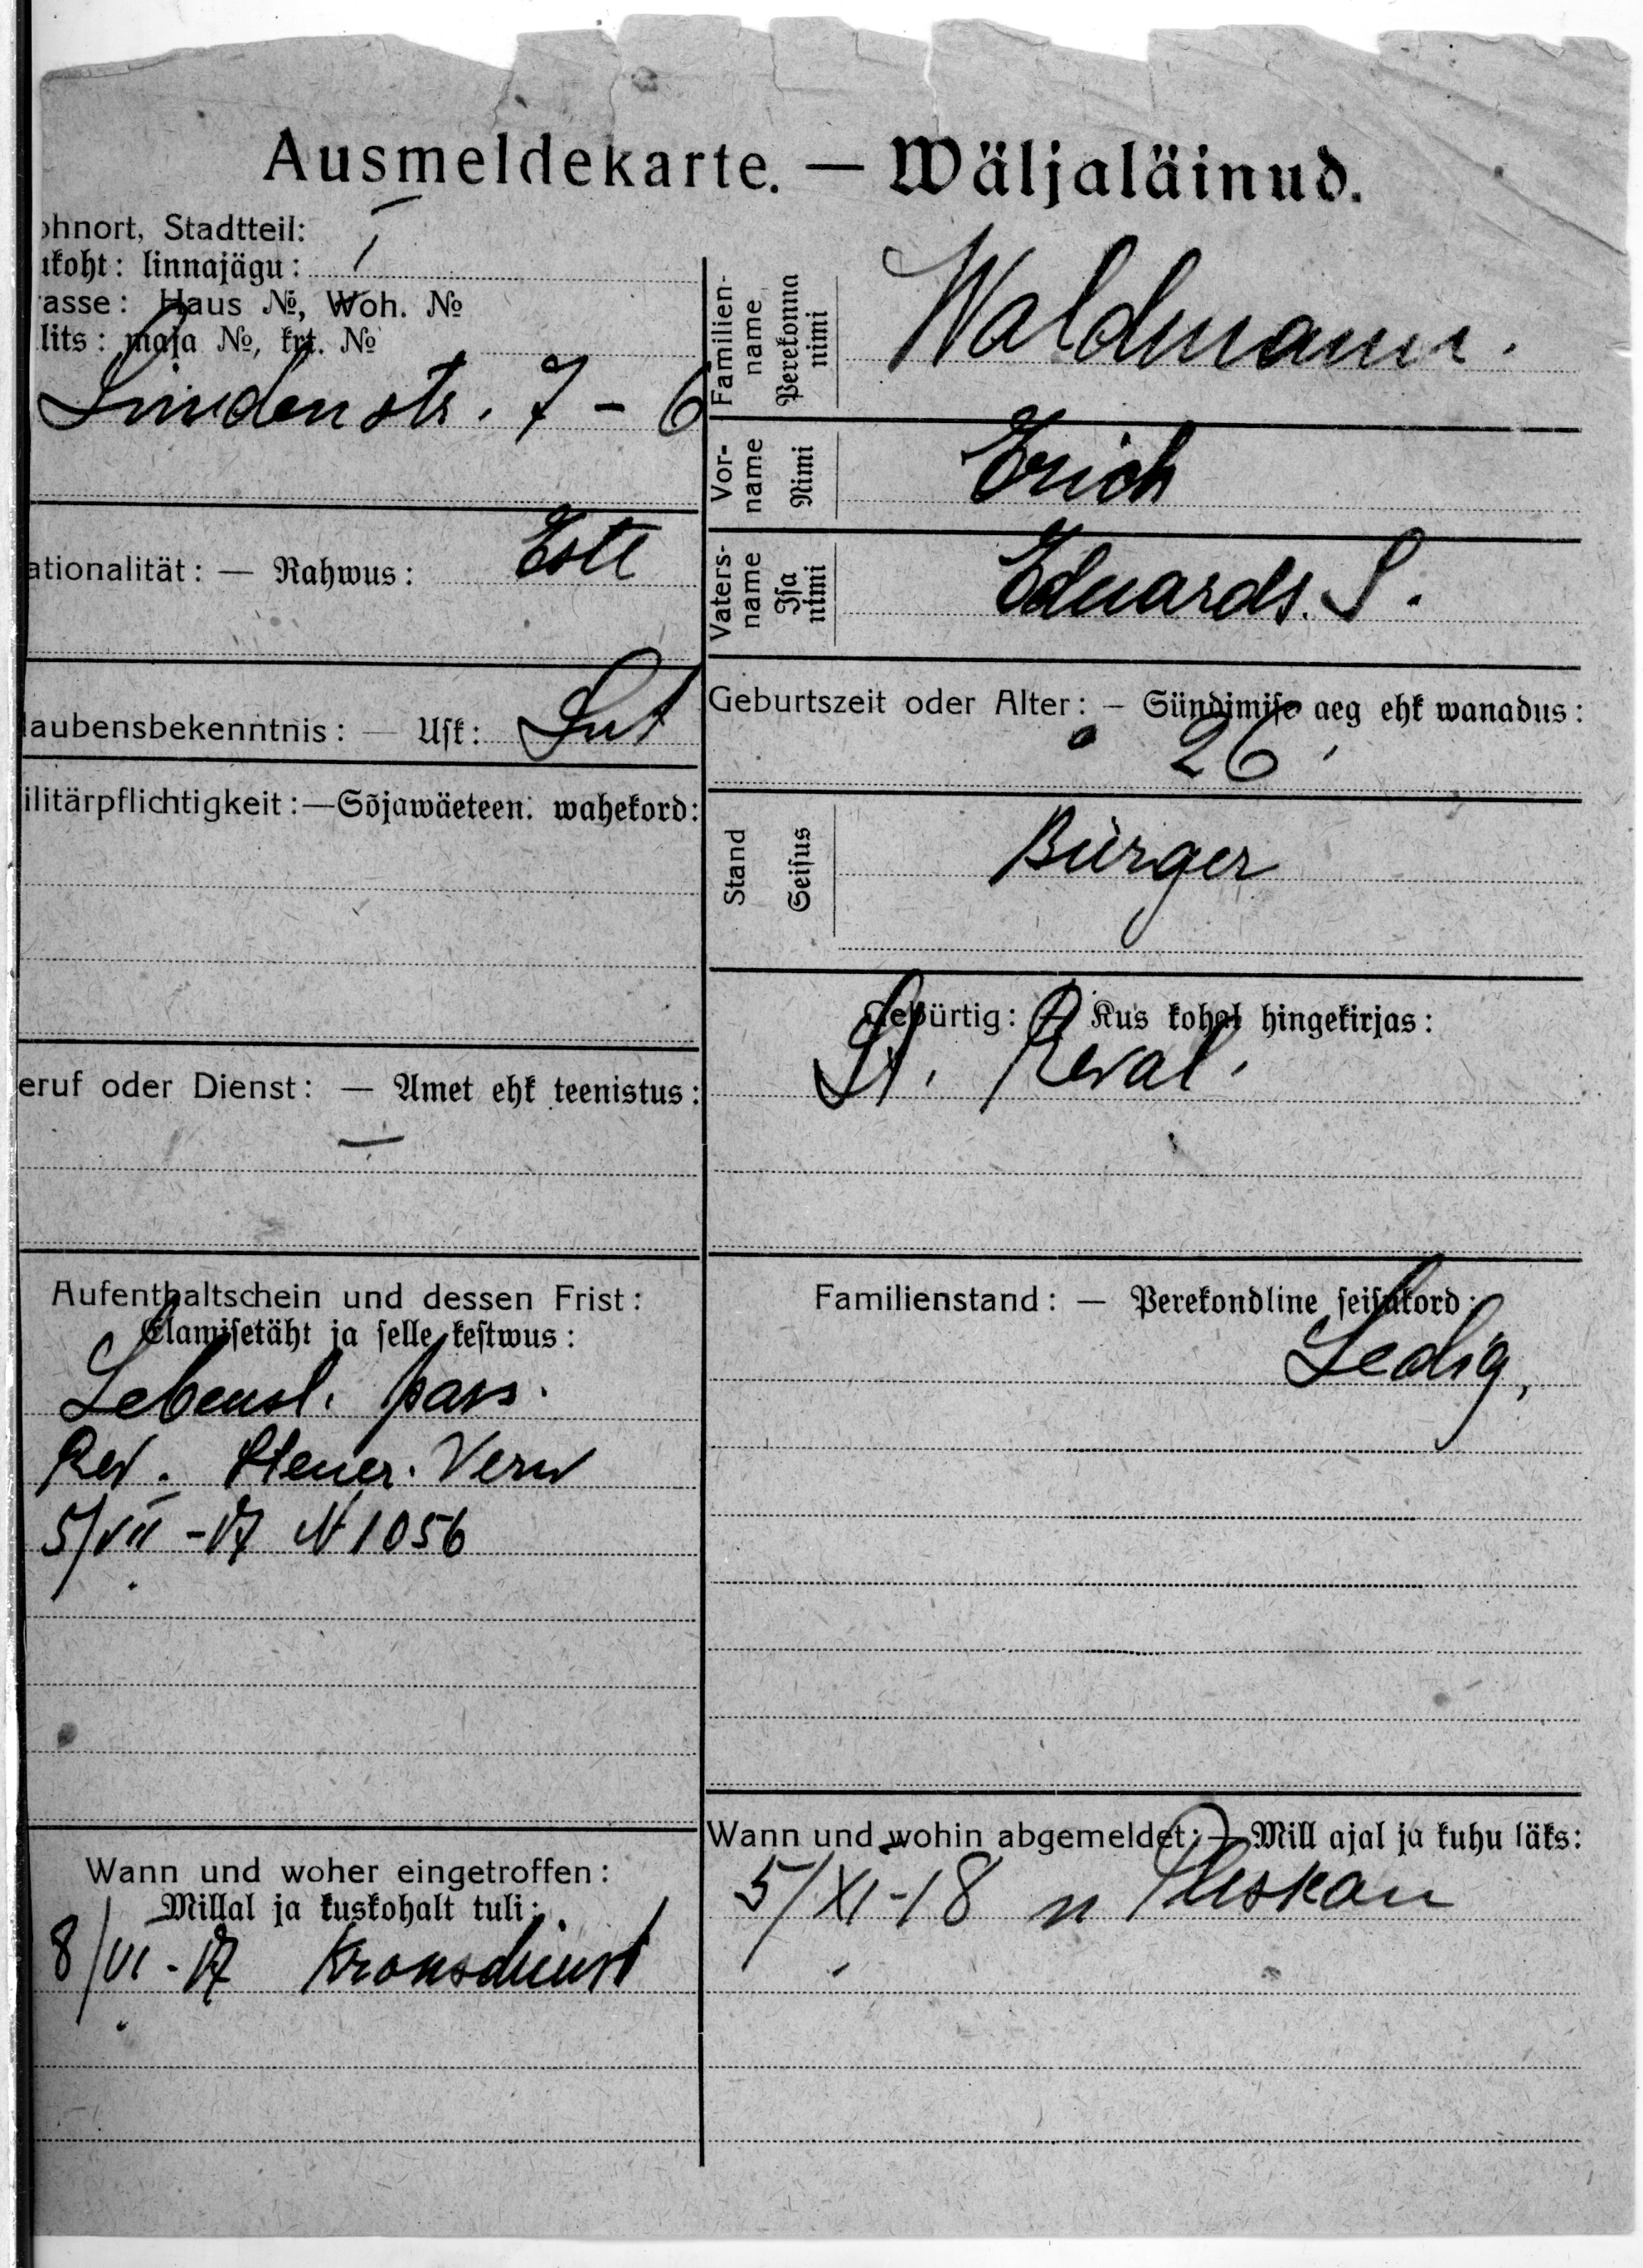 Ausmeldekarte. — Wäljaläinud.
ohnort, Stadtteil:
ukoht: linnajägu: I
asse: Haus №, Woh. №
lits: maja №, krt. №
Lindenstr. 7 - 6
ationalität: — Rahwus: Este
laubensbekenntnis: — Usk: Lut
ilitärpflichtigkeit:—Sõjawäeteen. wahekord:
eruf oder Dienst: — Amet ehk teenistus:
—
Aufenthaltschein und dessen Frist:
Elamisetäht ja selle kestwus:
Lebensl. pass.
Rev. Steuer. Verw
5/VII -17 N 1056
Wann und woher eingetroffen:
Millal ja kuskohalt tuli:
8/VI - 17 Kronsdienst
Familien-
name
Perekonna
nimi
Waldmann.
Vor-
name
Nimi
Erich
Vaters-
name
Isa
nimi
Eduards. S.
Geburtszeit oder Alter: — Sündimise aeg ehk wanadus:
26
Stand
Seisus
Bürger
Gebürtig: — Kus kohal hingekirjas:
St. Reval.
Familienstand: — Perekondline seisukord:
Ledig,
Wann und wohin abgemeldet: — Mill ajal ja kuhu läks:
5/XI-18 n Pleskau